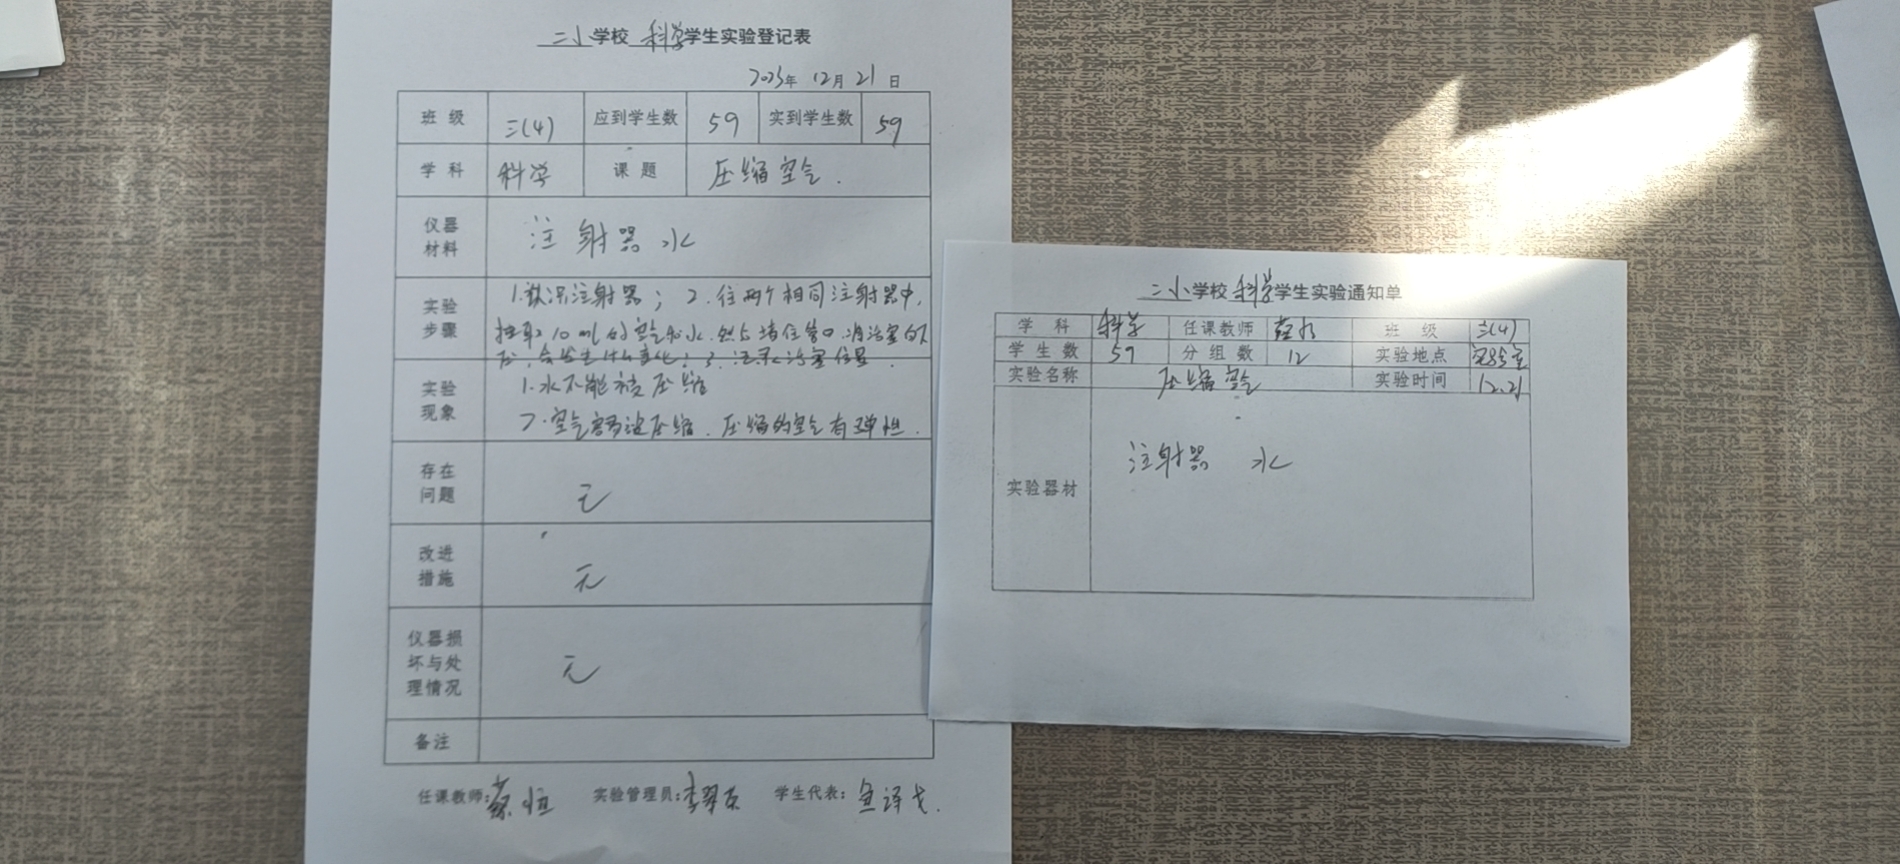 二小学校 科学学生实验登记表
2023年 12月 21日
班级 三(4) 应到学生数 59 实到学生数 59
学科 科学 课题 压缩空气.
仪器材料 注射器 水
实验步骤 1.认识注射器; 2.往两个相同注射器中,
抽取10ml的空气和水.然后堵住管口.将活塞向下
压,会发生什么变化; 3.记录活塞位置.
实验现象 1.水不能被压缩
2.空气容易被压缩.压缩的空气有弹性.
存在问题 无
改进措施 无
仪器损坏与处理情况 无
备注
任课教师: 恒 实验管理员: 李 学生代表:
二小学校 科学学生实验通知单
学科 科学 任课教师 班级 三(4)
学生数 59 分组数 12 实验地点
实验名称 压缩空气 实验时间 12.21
实验器材 注射器 水